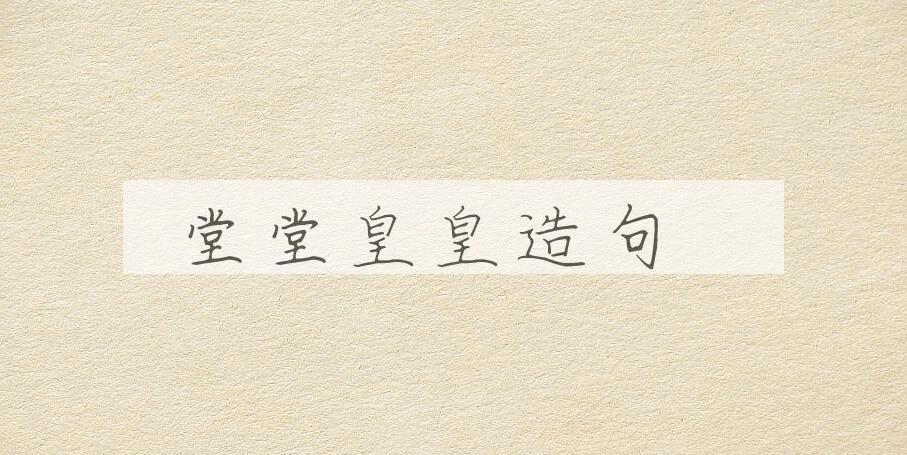 堂堂皇皇造句